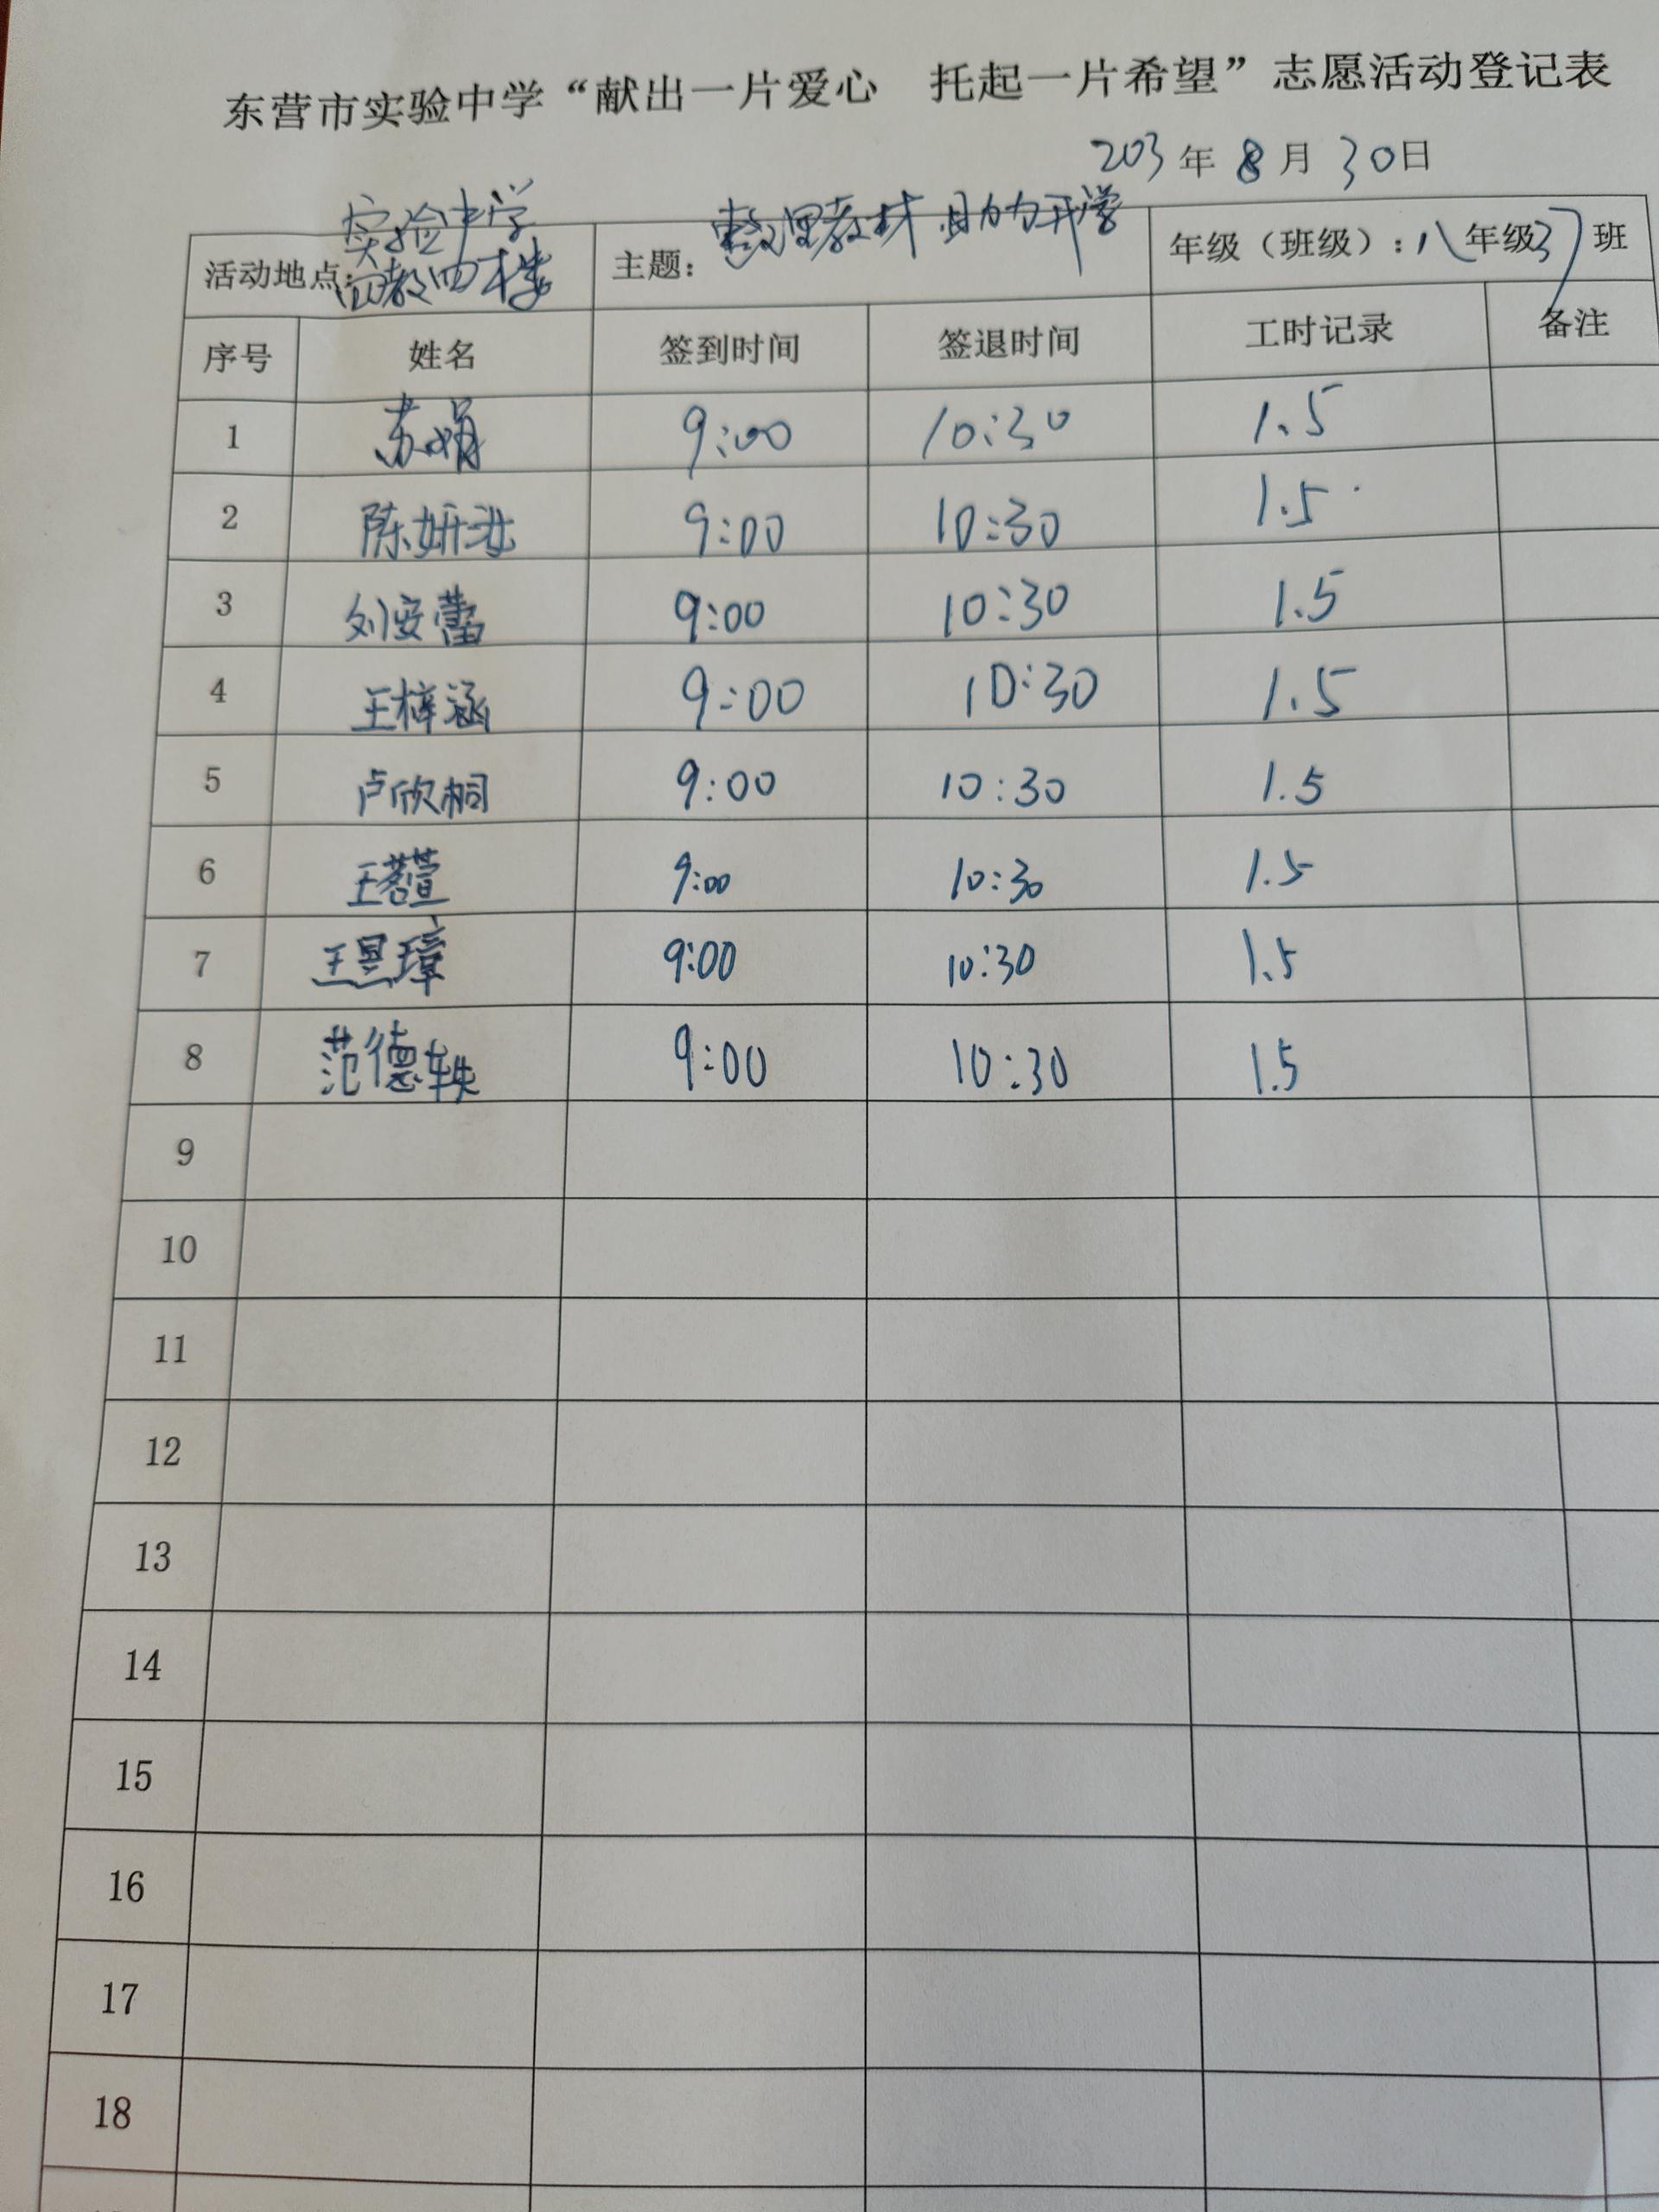 东营市实验中学“献出一片爱心 托起一片希望”志愿活动登记表
203年8月30日
活动地点: 实验中学 四楼 主题: 整理教材 助力开学 年级(班级): 八年级37班
序号 姓名 签到时间 签退时间 工时记录 备注
1 苏娟 9:00 10:30 1.5
2 陈妍汝 9:00 10:30 1.5
3 刘安蕾 9:00 10:30 1.5
4 王梓涵 9:00 10:30 1.5
5 卢欣桐 9:00 10:30 1.5
6 王萱 9:00 10:30 1.5
7 王昱璋 9:00 10:30 1.5
8 范德轶 9:00 10:30 1.5
9
10
11
12
13
14
15
16
17
18